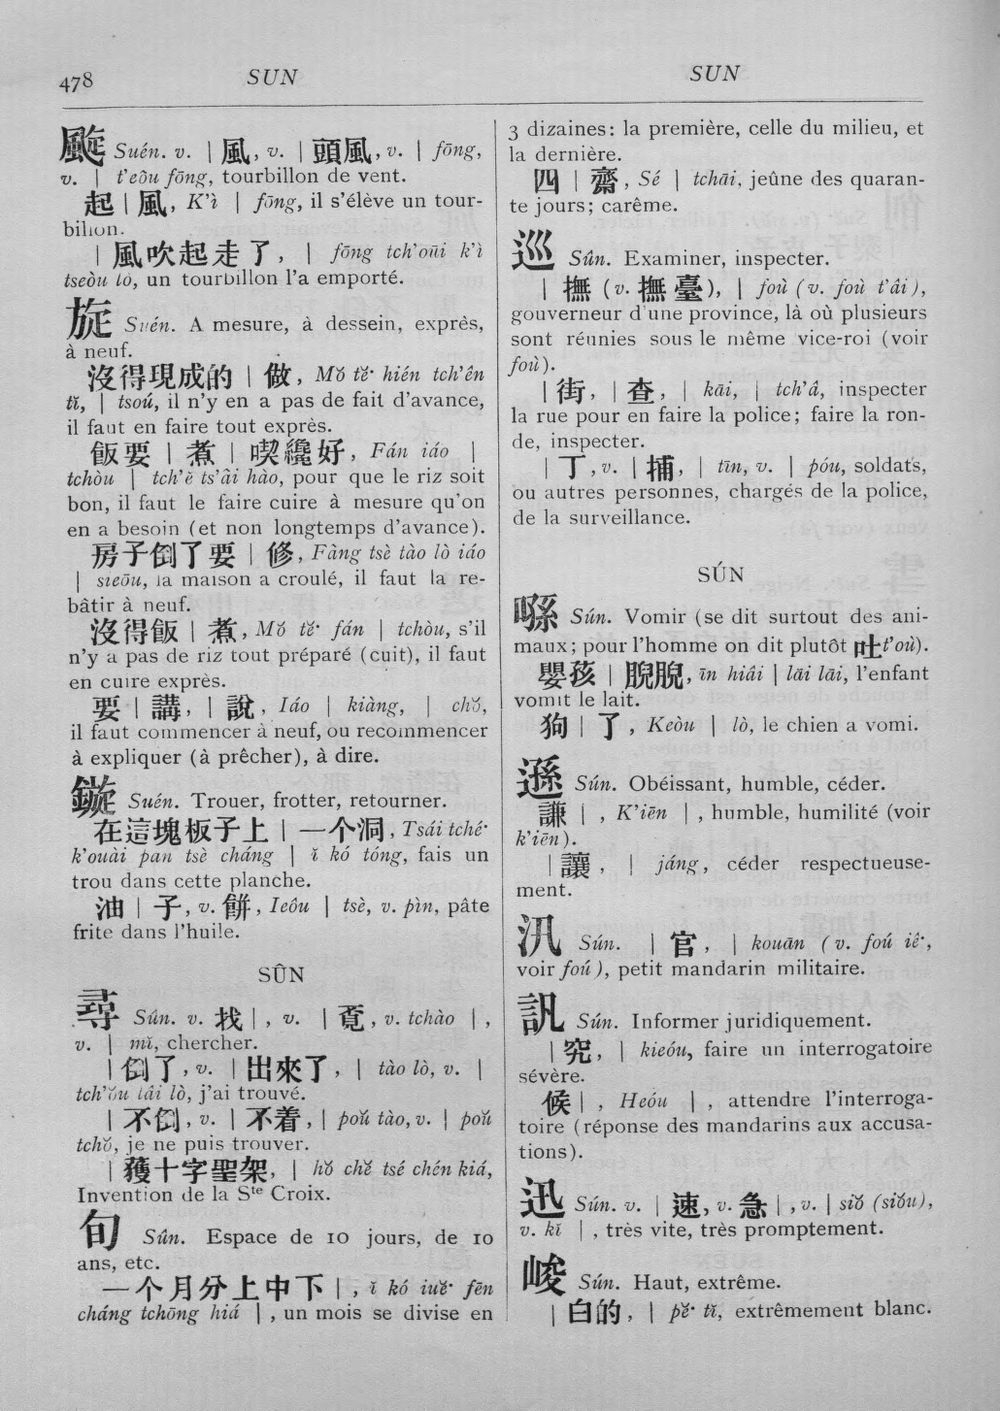 478 SUN SUN
颴 Suén. v. | 風, v. | 頭風, v. | fōng,
v. | t'eôu fōng, tourbillon de vent.
起 | 風, K'ì | fōng, il s'élève un tour-
billon.
| 風吹起走了, | fōng tch'oūi k'ì
tseòu lò, un tourbillon l'a emporté.
旋 Suén. A mesure, à dessein, exprès,
à neuf.
沒得現成的 | 做, Mŏ tĕ· hién tch'ên
tĭ, | tsoú, il n'y en a pas de fait d'avance,
il faut en faire tout exprès.
飯要 | 煮 | 喫纔好, Fán iáo |
tchòu | tch'ĕ ts'âi hào, pour que le riz soit
bon, il faut le faire cuire à mesure qu'on
en a besoin (et non longtemps d'avance).
房子倒了要 | 修, Fàng tsè tào lò iáo
| sieōu, la maison a croulé, il faut la re-
bâtir à neuf.
沒得飯 | 煮, Mŏ tĕ· fán | tchòu, s'il
n'y a pas de riz tout préparé (cuit), il faut
en cuire exprès.
要 | 講, | 說, Iáo | kiàng, | chŏ,
il faut commencer à neuf, ou recommencer
à expliquer (à prêcher), à dire.
鏇 Suén. Trouer, frotter, retourner.
在這塊板子上 | 一个洞, Tsái tché·
k'ouài pan tsè cháng | ĭ kó tóng, fais un
trou dans cette planche.
油 | 子, v. 餅, Ieôu | tsè, v. pìn, pâte
frite dans l'huile.
SÛN
尋 Sûn. v. 找 |, v. | 覓, v. tchào |,
v. | mĭ, chercher.
| 倒了, v. | 出來了, | tào lò, v. |
tch'ŏu lâi lò, j'ai trouvé.
| 不倒, v. | 不着, | poŭ tào, v. | poŭ
tchŏ, je ne puis trouver.
| 獲十字聖架, | hŏ chĕ tsé chén kiá,
Invention de la Ste Croix.
旬 Sûn. Espace de 10 jours, de 10
ans, etc.
一个月分上中下 |, ĭ kó iuĕ· fēn
cháng tchōng hiá |, un mois se divise en
3 dizaines: la première, celle du milieu, et
la dernière.
四 | 齋, Sé | tchāi, jeûne des quaran-
te jours; carême.
巡 Sûn. Examiner, inspecter.
| 撫 (v. 撫臺), | foù (v. foù t'âi),
gouverneur d'une province, là où plusieurs
sont réunies sous le même vice-roi (voir
foù).
| 街, | 查, | kāi, | tch'â, inspecter
la rue pour en faire la police; faire la ron-
de, inspecter.
| 丁, v. | 捕, | tīn, v. | póu, soldats,
ou autres personnes, chargés de la police,
de la surveillance.
SÚN
Sún. Vomir (se dit surtout des ani-
maux; pour l'homme on dit plutôt 吐 t'où).
嬰孩 | 脫脫, īn hiâi | lāi lāi, l'enfant
vomit le lait.
狗 | 了, Keòu | lò, le chien a vomi.
遜 Sún. Obéissant, humble, céder.
謙 |, K'iēn |, humble, humilité (voir
k'iēn).
| 讓, | jáng, céder respectueuse-
ment.
汛 Sún. | 官, | kouān (v. foú iê·,
voir foú), petit mandarin militaire.
訊 Sún. Informer juridiquement.
| 究, | kieóu, faire un interrogatoire
sévère.
候 |, Heóu |, attendre l'interroga-
toire (réponse des mandarins aux accusa-
tions).
迅 Sún. v. | 速, v. 急 |, v. | siŏ (siŏu),
v. kĭ |, très vite, très promptement.
峻 Sún. Haut, extrême.
| 白的, | pĕ· tĭ, extrêmement blanc.